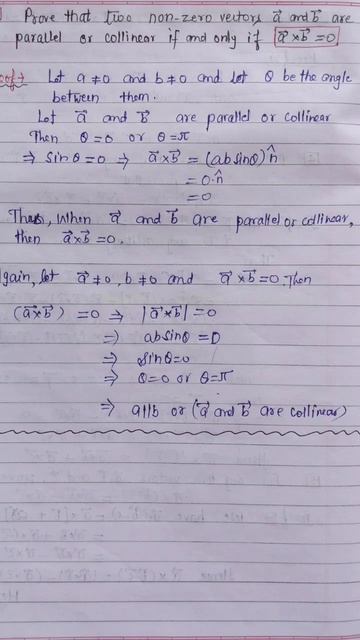 Prove that two non-zero vectors a⃗ and b⃗ are
parallel or collinear if and only if a⃗×b⃗=0
oof→ Let a≠0 and b≠0 and let θ be the angle
between them.
Let a⃗ and b⃗ are parallel or collinear
Then θ=0 or θ=π
⇒ Sinθ=0 ⇒ a⃗×b⃗ = (ab sinθ)n̂
= 0·n̂
= 0
Thus, When a⃗ and b⃗ are parallel or collinear,
then a⃗×b⃗=0.
gain, let a⃗≠0, b≠0 and a⃗×b⃗=0. Then
(a⃗×b⃗) =0 ⇒ |a⃗×b⃗|=0
⇒ absinθ=0
⇒ sinθ=0
⇒ θ=0 or θ=π
⇒ a||b or (a⃗ and b⃗ are collinear)